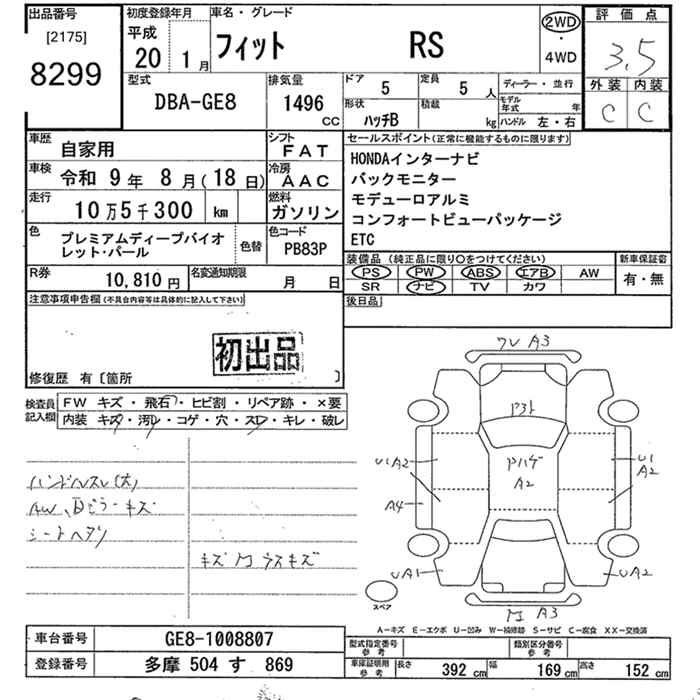 出品番号 初度登録年月 車名・グレード 評価点
[2175] 平成 2WD
8299 20 1月 フィット RS ・ 3.5
4WD 外装 内装
型式 排気量 ドア 定員 ディーラー・並行 C C
DBA-GE8 1496 CC 5 5 人 モデル年式 年
形状 ハッチB 積載 kg ハンドル 左・右
車歴 自家用 シフト FAT セールスポイント(正常に機能するものに限ります)
車検 令和 9年 8月(18日) 冷房 AAC HONDAインターナビ
バックモニター
走行 10万5千300 km 燃料 ガソリン モデューロアルミ
コンフォートビューパッケージ
色 プレミアムディープバイオ 色替 色コード ETC
レット・パール PB83P
装備品 (純正品に限り○をつけてください) 新車保証書
R券 10,810円 名変通知期限 月 日 PS PW ABS エアB AW 有・無
SR ナビ TV カワ
注意事項申告欄(不具合内容等は具体的に記入して下さい) 後日品
初出品
修復歴 有〔箇所 〕
検査員 FW キズ・飛石・ヒビ割・リペア跡・×要
記入欄 内装 キズ・汚レ・コゲ・穴・スレ・キレ・破レ
ワレ A3
U1 A2
A2
U1
A2
ハンドルスレ(大)
A4
シートヘタリ
UA1 UA2
スペア
A3
A－キズ E－エクボ U－凹み W－補修跡 S－サビ C－腐食 XX－交換済
車台番号 GE8-1008807 型式指定番号 参考 類別区分番号 参考
登録番号 多摩 504 す 869 車庫証明用 参考 長さ 392 cm 幅 169 cm 高さ 152 cm